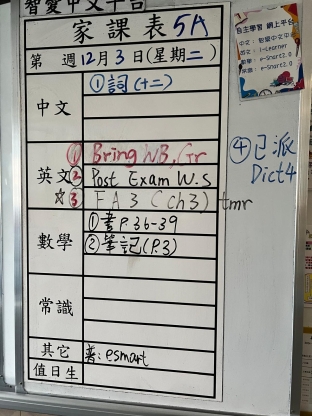 智愛中文平台
家課表 5A
第 週 12月3日(星期二)
中文
①詞(十二)
英文
① Bring WB, Gr
② Post Exam W.S
☆③ FA3 (ch3) tmr
④已派
Dict4
數學
①書P.36-39
②筆記(P.3)
常識
其它
普: esmart
值日生
自主學習 網上平台
中文: 智愛中文平台
英文: i-Learner
數學: e-Smart2.0
常識: e-Smart2.0